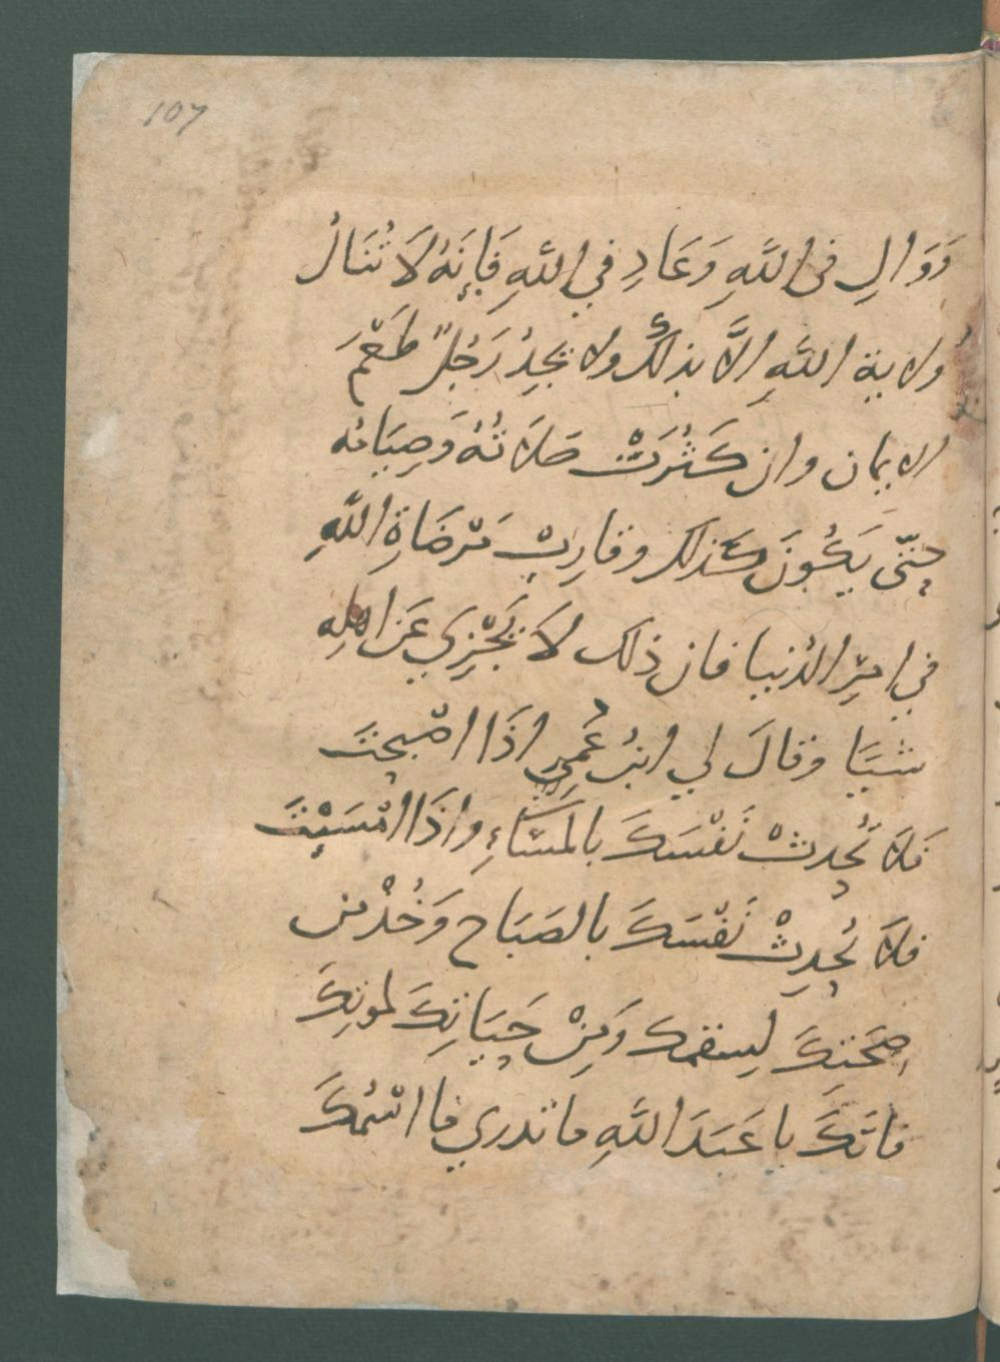 107
وَوَالِ فى اللَّهِ وَعَادِ فِي اللَّهِ فَإِنَّهُ لَا تُنَالُ
وُلاية اللَّهِ الَّا بذلكَ ولا يجِدُ رَجُلٌ طَعْمَ
الايمان وان كَثُرَتْ صَلَاتُهُ وَصِيَامُه
حتَّى يَكُونَ كذلك وقارِبْ مَرْضَاةِ اللَّهِ
في امْرِ الدُنيا فان ذلك لَا يَجْزِي عَن اهلِه
شيَيا وقالَ لي ابنُ عُمر اذَا اصْبحتَ
فَلَا تُحدِثْ نَفْسَكَ بالمَسَاءِ واذَا امْسَيْتَ
فلَا تُحدِثْ نَفْسَكَ بالصَبَاح وَخُذْ من
صِحَتِكَ لِسقمك وَمِنْ حَيَاتِكَ لموتِكَ
فانَكَ يا عَبَدَ اللَّهِ ما تدري ما اسْمُكَ